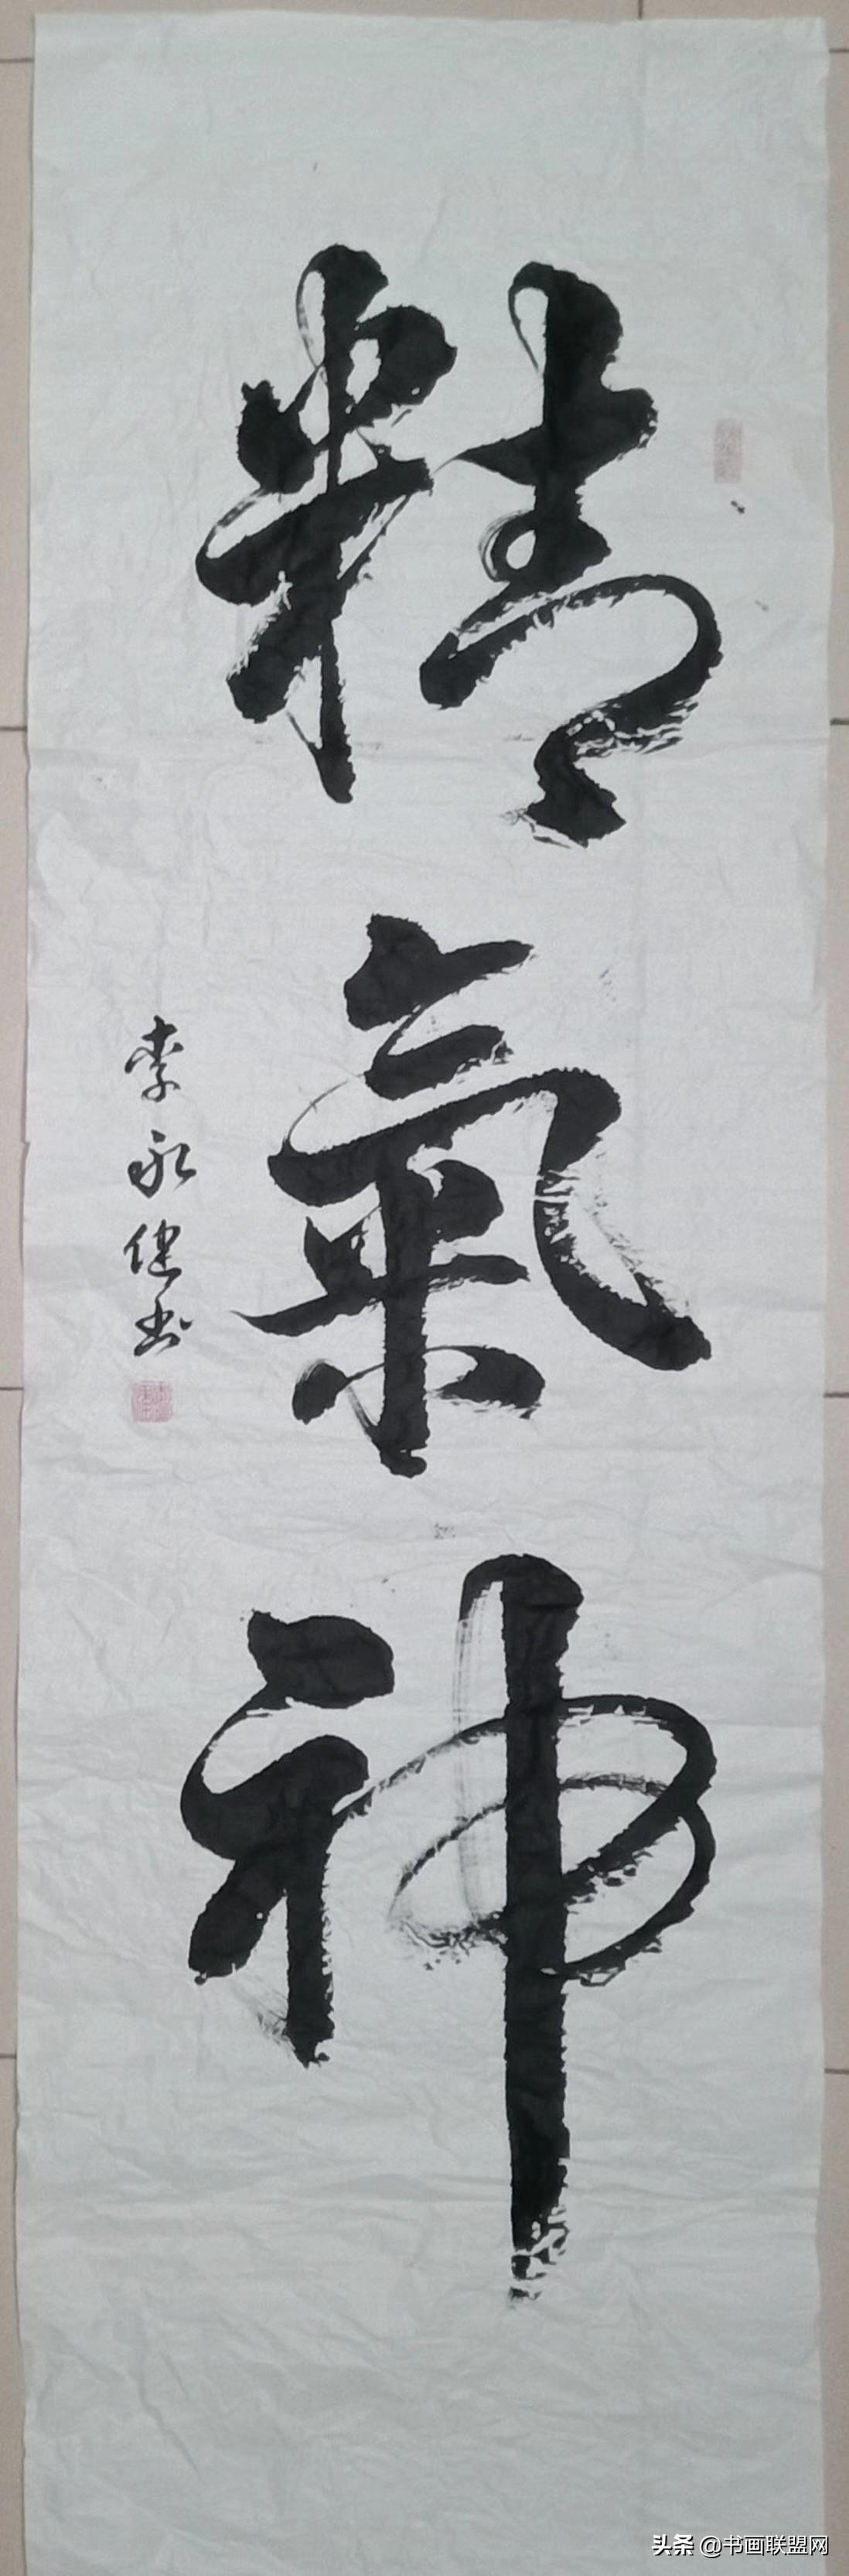 精氣神
李永健书
头条 @书画联盟网